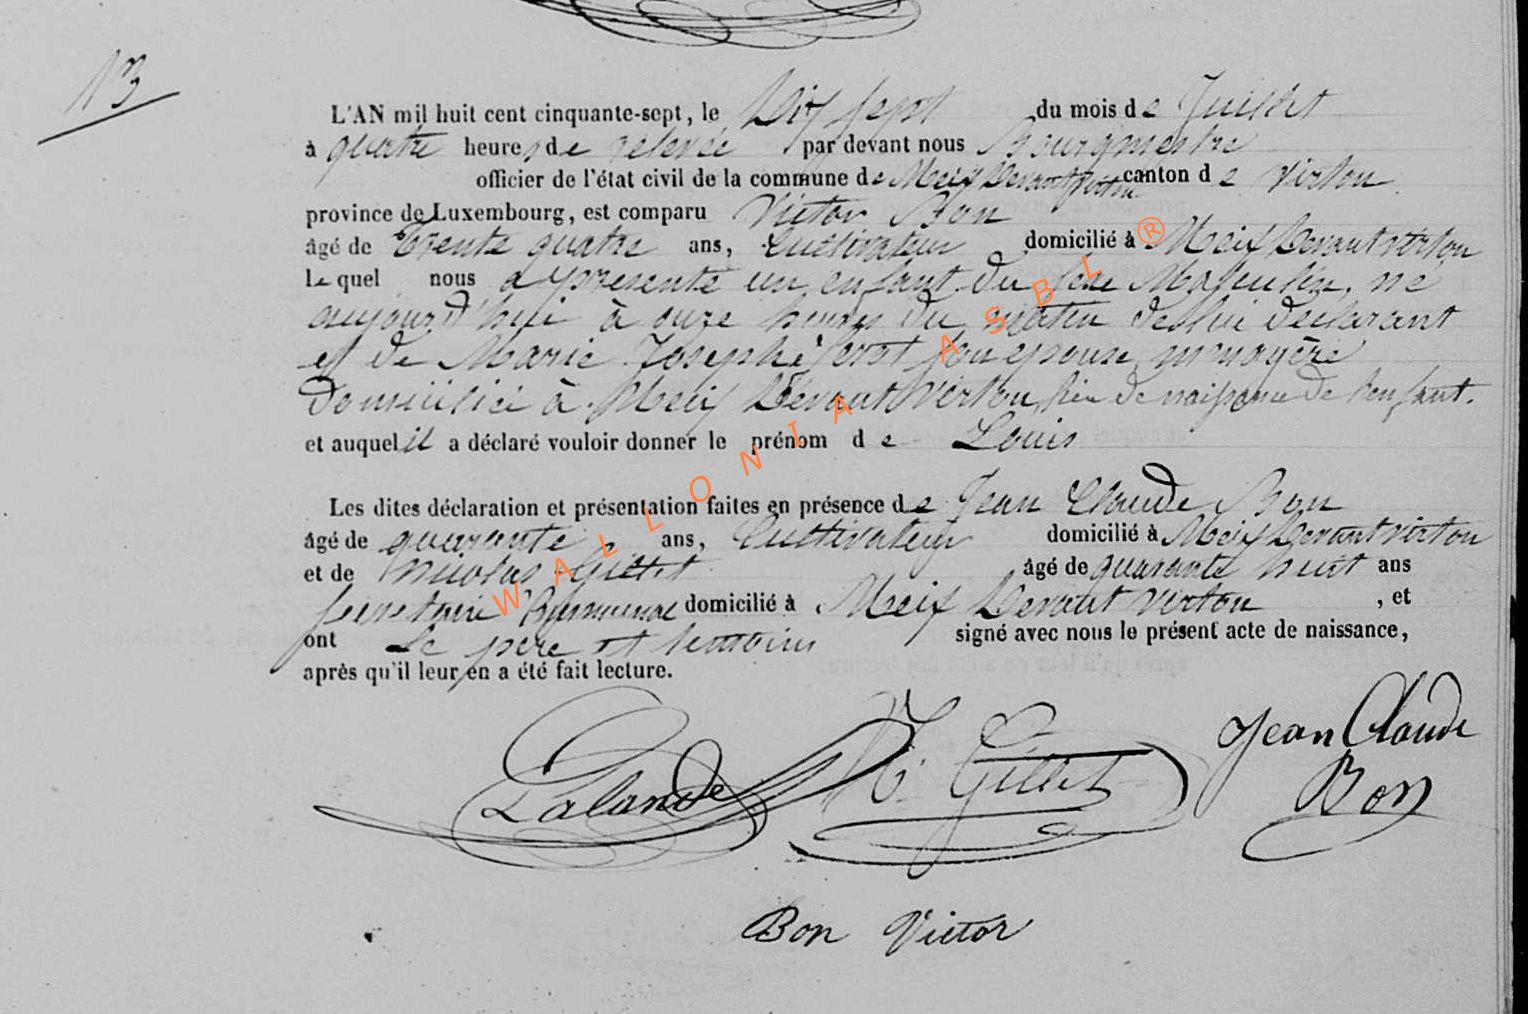 13
L'AN mil huit cent cinquante-sept, le Dix sept du mois de Juillet
à quatre heures de relevée par devant nous Bourgmestre
officier de l'état civil de la commune de Meix Devant Virton canton de Virton
province de Luxembourg, est comparu Victor Bon
âgé de Trente quatre ans, Cultivateur domicilié à Meix Devant Virton
lequel nous a présenté un enfant du sexe Masculin, né
aujourd'hui à onze heures du matin de lui déclarant
et de Marie Josephe son epouse, menagère
domiciliée à Meix Devant Virton, lieu de naissance de l'enfant.
et auquel il a déclaré vouloir donner le prénom de Louis
Les dites déclaration et présentation faites en présence de Jean Claude Bon
âgé de quarante ans, Cultivateur domicilié à Meix Devant Virton
et de Nicolas Gillet âgé de quarante huit ans
secretaire Communal domicilié à Meix Devant Virton, et
ont le père et temoins signé avec nous le présent acte de naissance,
après qu'il leur en a été fait lecture.
Lalande N. Gillet Jean Claude
Bon
Bon Victor
WALLONIA ASBL ®